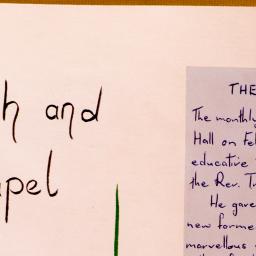 h and
pel
THE
The monthly
Hall on Fe
educative
the Rev. T
He gave
new forme
marvellous